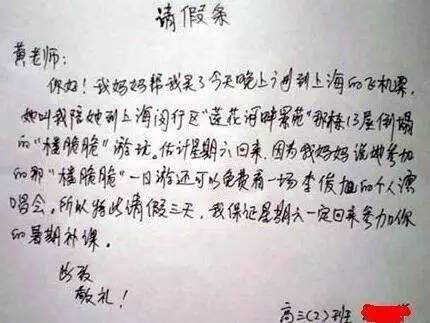 请假条
黄老师:
你好!我妈妈帮我买了今天晚上飞到上海的飞机票
她叫我陪她到上海闵行区“莲花河畔景苑”那栋13层倒塌
的“楼脆脆”游玩。估计星期六回来,因为我妈妈说她参加
的那“楼脆脆”一日游还可以免费看一场李俊旭的个人演
唱会。所以特此请假三天,我保证星期六一定回来参加你
的暑期补课。
此致
敬礼!
高三(2)班